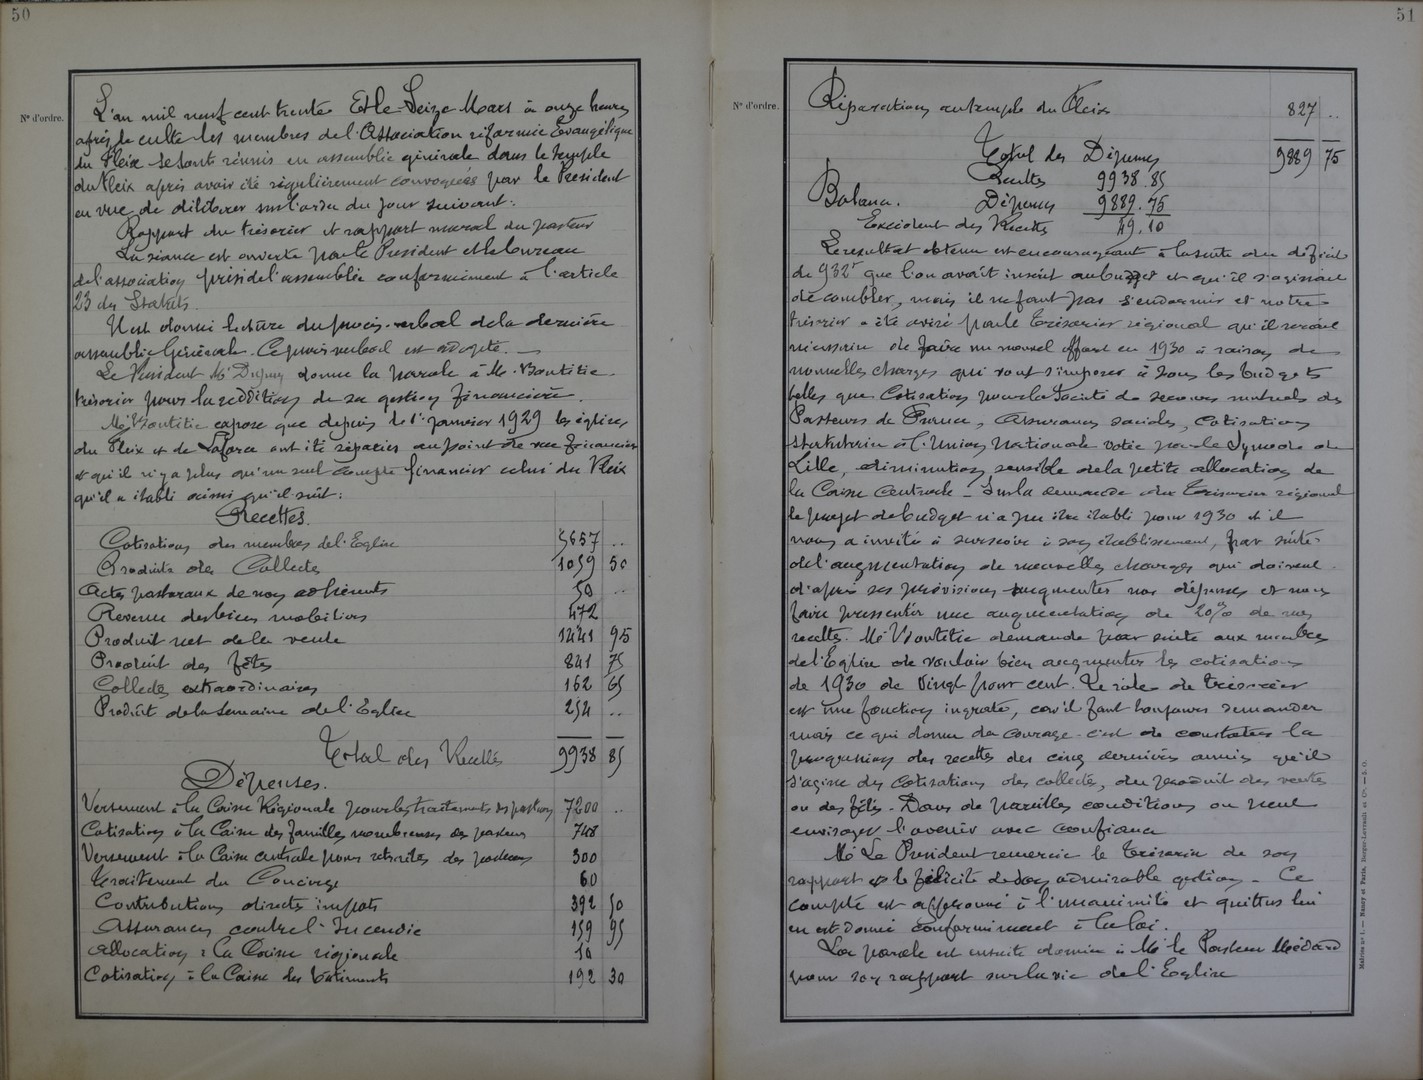 50
N° d'ordre.
L'an mil neuf cent trente Et le Seize Mars à onze heures
après le culte les membres de l'Association réformée Evangélique
du Fleix se sont réunis en assemblée générale dans le temple
du Fleix après avoir été régulièrement convoquées par le Président
en vue de délibérer sur l'ordre du jour suivant :
Rapport du trésorier et rapport moral du pasteur
La séance est ouverte par le Président et le bureau
de l'association préside l'assemblée conformément à l'article
23 des Statuts.
Il est donné lecture du procès-verbal de la dernière
assemblée Générale. Ce procès verbal est adopté. —
Le Président Mr Dupuy donne la parole à Mr
trésorier pour la reddition de sa gestion financière.
Mr expose que depuis le 1er janvier 1929 les églises
du Fleix et de Laforce ont été séparées au point de vue financier
et qu'il n'y a plus qu'un seul compte financier celui du Fleix
qu'il a établi ainsi qu'il suit :
Recettes.
Cotisations des membres de l'Eglise 5657 ..
Produits des Collectes 1059 50
Actes pastoraux de non adhérents 50 ..
Revenu des biens mobiliers 472
Produit net de la vente 1441 95
Produit des fêtes 841 75
Collectes extraordinaires 162 65
Produit de la Semaine de l'Eglise 254 ..
Total des Recettes 9938 85
Dépenses.
Versement à la Caisse Régionale pour les traitements des pasteurs 7200 ..
Cotisation à la Caisse des familles nombreuses des pasteurs 748
Versement à la Caisse centrale pour retraites des pasteurs 300
Traitement du Concierge 60
Contributions directes impôts 392 50
Assurances contre l'Incendie 159 95
Allocation à la Caisse régionale 10
Cotisation à la Caisse des bâtiments 192 30
51
N° d'ordre.
Réparations au temple du Fleix 827 ..
Total des Dépenses 9889 75
Recettes 9938.85
Balance. Dépenses 9889.75
Excédent des Recettes 49.10
Le resultat obtenu est encourageant à la suite du déficit
de 932f que l'on avait inscrit au budget et qu'il s'agissait
de combler, mais il ne faut pas s'endormir et notre
trésorier a été avisé par le trésorier régional qu'il serait
nécessaire de faire un nouvel effort en 1930 à raison de
nouvelles charges qui vont s'imposer à tous les budgets
telles que Cotisation pour la Société de secours mutuels des
Pasteurs de France, Assurances sociales, cotisation
statutaire à l'Union Nationale votée par le Synode de
Lille, diminution sensible de la petite allocation de
la Caisse Centrale — Sur la demande du trésorier régional
le projet de budget n'a pu être établi pour 1930 et il
nous a invité à surseoir à son établissement, par suite
de l'augmentation de nouvelles charges qui doivent
d'après ses prévisions augmenter nos dépenses et nous
faire pressentir une augmentation de 20% de nos
recettes. Mr demande par suite aux membres
de l'Eglise de vouloir bien augmenter les cotisations
de 1930 de Vingt pour cent. Le rôle de trésorier
est une fonction ingrate, car il faut toujours demander
mais ce qui donne du courage c'est de constater la
progression des recettes des cinq dernières années qu'il
s'agisse des cotisations des collectes, du produit des ventes
ou des fêtes. Dans de pareilles conditions on peut
envisager l'avenir avec confiance
Mr Le Président remercie le trésorier de son
rapport et le félicite de son admirable gestion — Ce
compte est approuvé à l'unanimité et quittus lui
en est donné conformément à la loi.
La parole est ensuite donnée à Mr le Pasteur Médard
pour son rapport sur la vie de l'Eglise
Modèle n° 1. — Nancy et Paris, Berger-Levrault et Cie. — J. O.